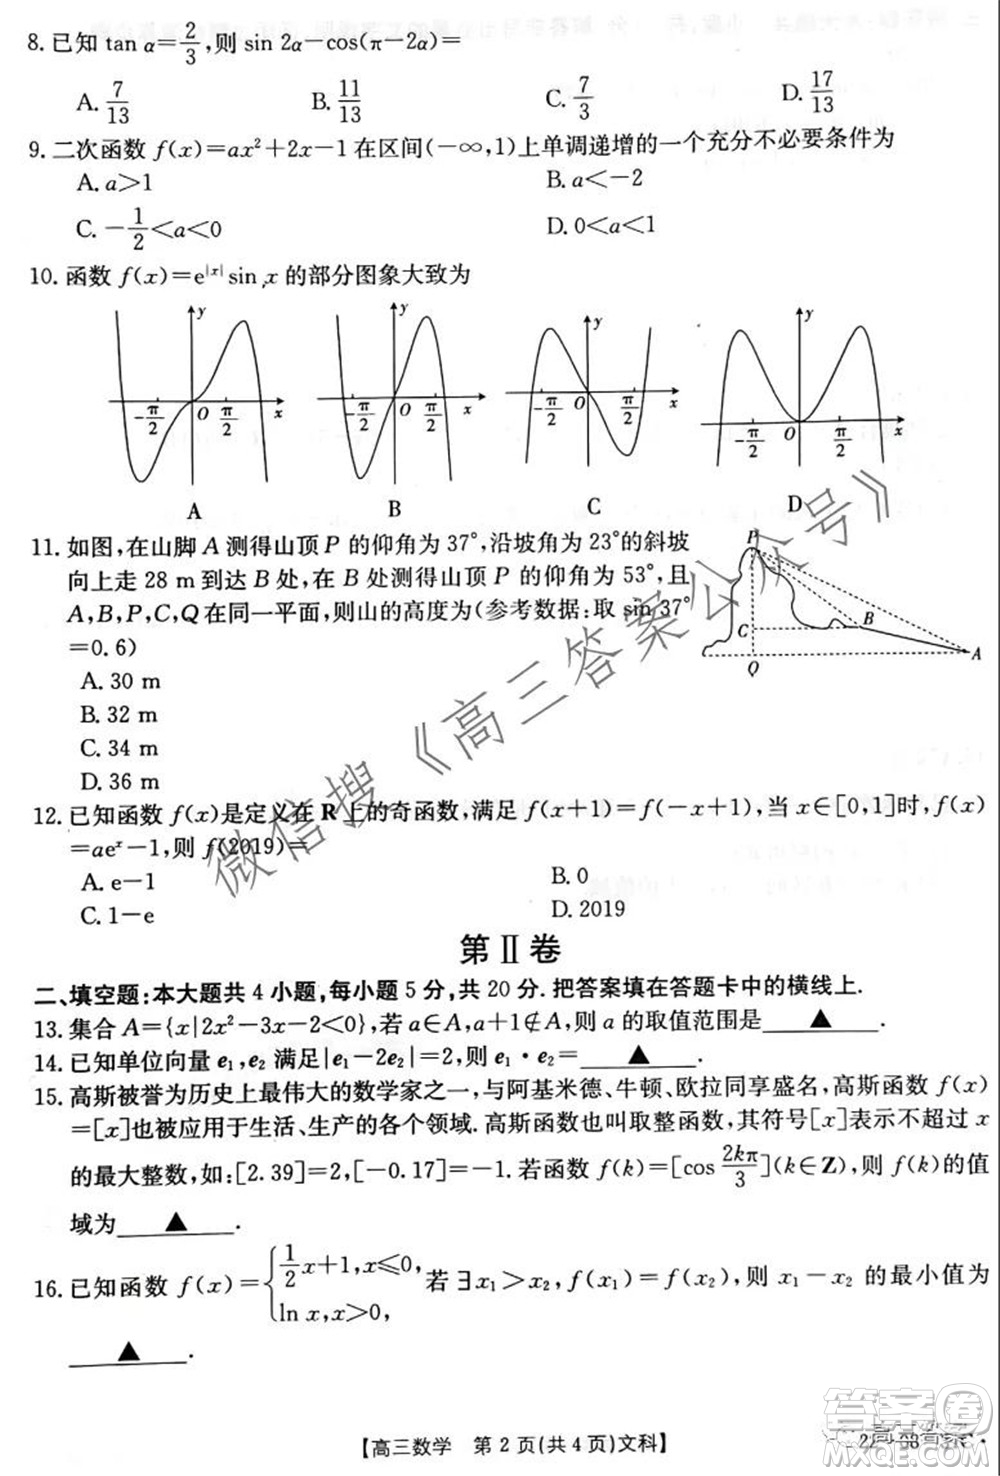 8. 已知 tan α=2/3,则 sin 2α-cos(π-2α)=
A. 7/13 B. 11/13 C. 7/3 D. 17/13
9. 二次函数 f(x)=ax²+2x-1 在区间(-∞,1)上单调递增的一个充分不必要条件为
A. a>1 B. a<-2
C. -1/2<a<0 D. 0<a<1
10. 函数 f(x)=e^|x| sin x 的部分图象大致为
y -π/2 O π/2 x y -π/2 O π/2 x y -π/2 O π/2 x y -π/2 O π/2 x
A B C D
11. 如图,在山脚 A 测得山顶 P 的仰角为 37°,沿坡角为 23°的斜坡
向上走 28 m 到达 B 处,在 B 处测得山顶 P 的仰角为 53°,且
A,B,P,C,Q 在同一平面,则山的高度为(参考数据:取 sin 37°
=0.6)
P
C B
Q A
A. 30 m
B. 32 m
C. 34 m
D. 36 m
12. 已知函数 f(x)是定义在 R 上的奇函数,满足 f(x+1)=f(-x+1),当 x∈[0,1]时,f(x)
=ae^x-1,则 f(2019)=
A. e-1 B. 0
C. 1-e D. 2019
第Ⅱ卷
二、填空题:本大题共 4 小题,每小题 5 分,共 20 分.把答案填在答题卡中的横线上.
13. 集合 A={x|2x²-3x-2<0},若 a∈A,a+1∉A,则 a 的取值范围是 ▲ .
14. 已知单位向量 e₁,e₂ 满足|e₁-2e₂|=2,则 e₁·e₂= ▲ .
15. 高斯被誉为历史上最伟大的数学家之一,与阿基米德、牛顿、欧拉同享盛名,高斯函数 f(x)
=[x]也被应用于生活、生产的各个领域.高斯函数也叫取整函数,其符号[x]表示不超过 x
的最大整数,如:[2.39]=2,[-0.17]=-1.若函数 f(k)=[cos 2kπ/3](k∈Z),则 f(k)的值
域为 ▲ .
16. 已知函数 f(x)={1/2x+1,x≤0, ln x,x>0, 若 ∃x₁>x₂,f(x₁)=f(x₂),则 x₁-x₂ 的最小值为
▲ .
【高三数学 第 2 页(共 4 页)文科】
微信搜《高三答案公众号》
答案圈